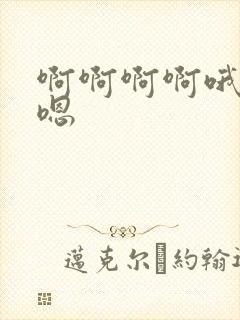 啊啊啊啊哦
嗯
邁克尔 約翰遜